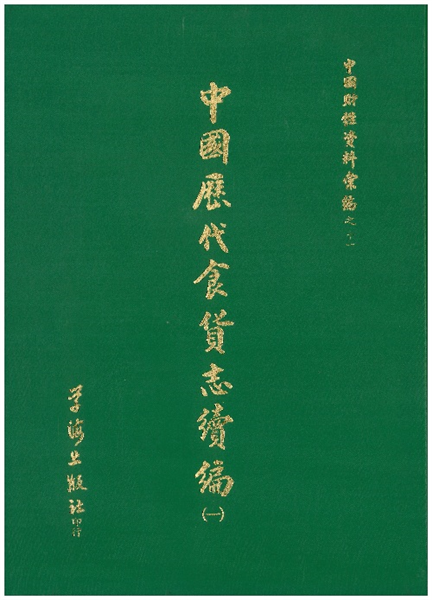 中國財經資料彙編之
中國歷代食貨志續編(一)
學海出版社印行